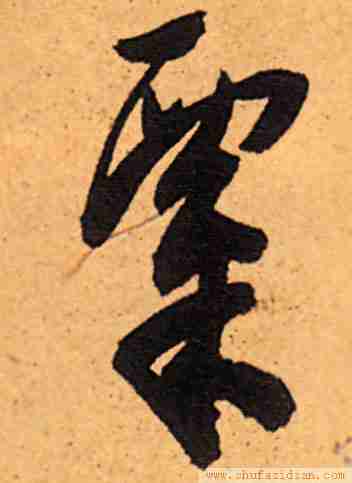 栗
www.shufazidian.com